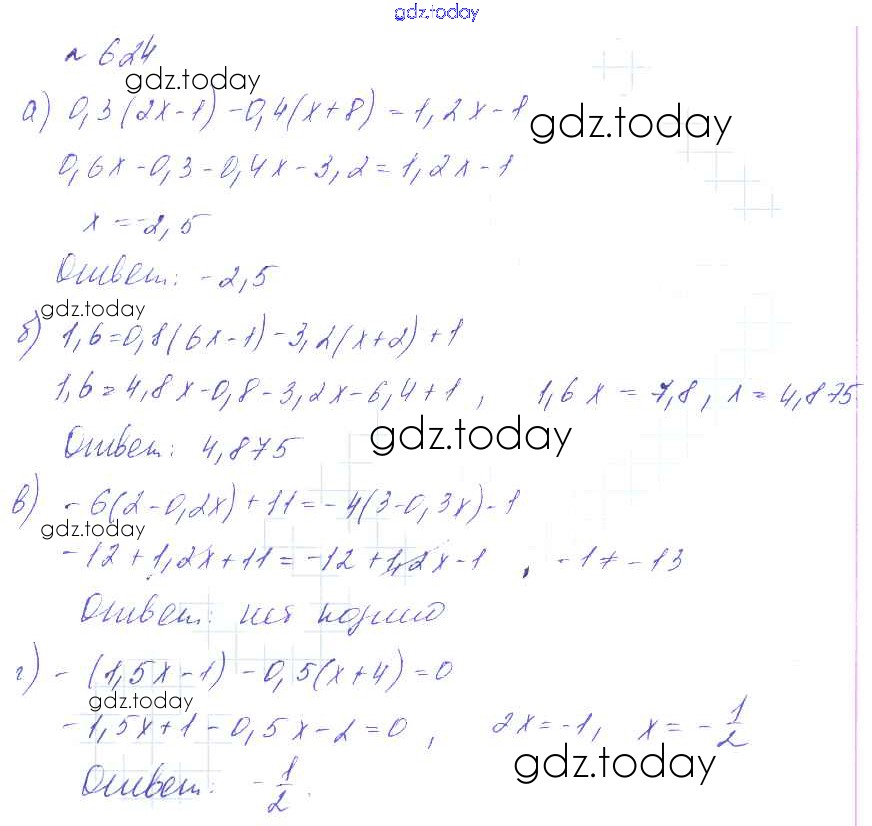 gdz.today
№ 624
gdz.today
а) 0,3(2x-1)-0,4(x+8)=1,2x-1
gdz.today
0,6x-0,3-0,4x-3,2=1,2x-1
x=-2,5
Ответ: -2,5
gdz.today
б) 1,6=0,8(6x-1)-3,2(x+2)+1
1,6=4,8x-0,8-3,2x-6,4+1, 1,6x=7,8, x=4,875
Ответ: 4,875
gdz.today
в) -6(2-0,2x)+11=-4(3-0,3x)-1
gdz.today
-12+1,2x+11=-12+1,2x-1, -1≠-13
Ответ: нет
г) -(1,5x-1)-0,5(x+4)=0
gdz.today
-1,5x+1-0,5x-2=0, 2x=-1, x=-1/2
gdz.today
Ответ: -1/2.